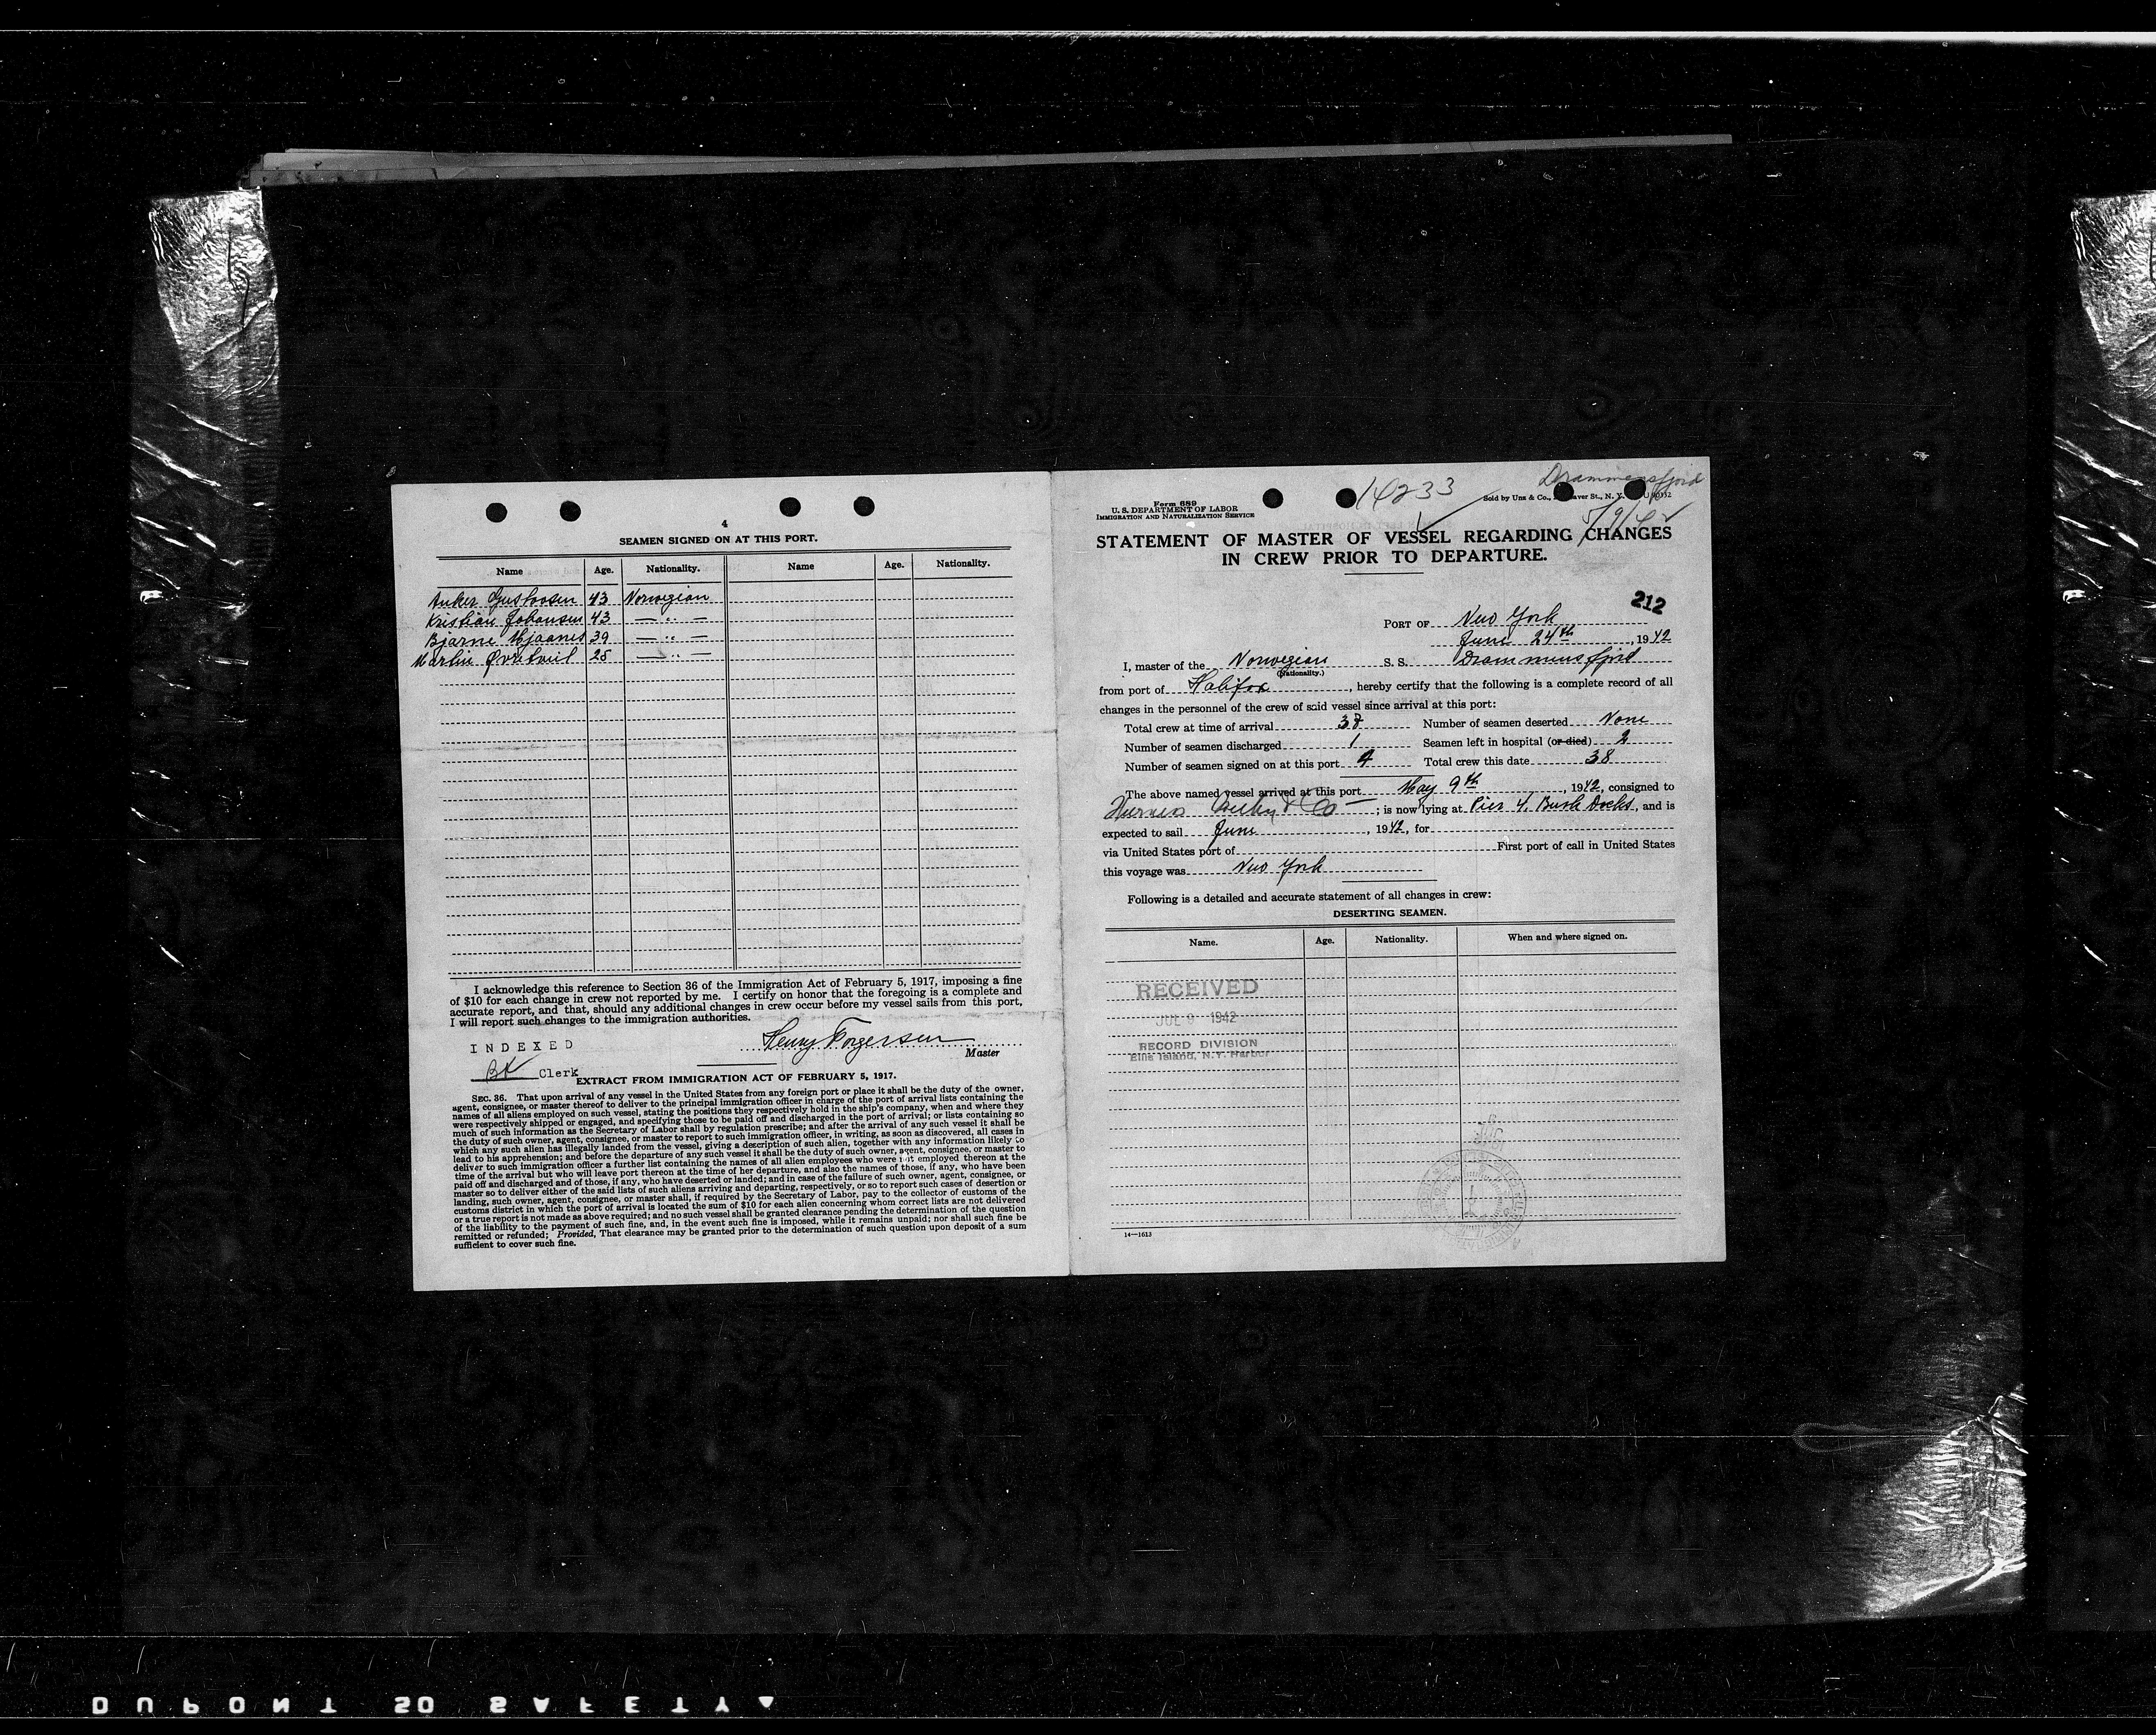 4
SEAMEN SIGNED ON AT THIS PORT.
Name Age. Nationality. Name Age. Nationality.
Anker 43 Norwegian
Kristian Johansen 43 — " —
Bjarne 39 — " —
Martin 28 — " —
I acknowledge this reference to Section 36 of the Immigration Act of February 5, 1917, imposing a fine
of $10 for each change in crew not reported by me. I certify on honor that the foregoing is a complete and
accurate report, and that, should any additional changes in crew occur before my vessel sails from this port,
I will report such changes to the immigration authorities.
Henry Torgersen
Master
INDEXED
BK Clerk
EXTRACT FROM IMMIGRATION ACT OF FEBRUARY 5, 1917.
SEC. 36. That upon arrival of any vessel in the United States from any foreign port or place it shall be the duty of the owner,
agent, consignee, or master thereof to deliver to the principal immigration officer in charge of the port of arrival lists containing the
names of all aliens employed on such vessel, stating the positions they respectively hold in the ship's company, when and where they
were respectively shipped or engaged, and specifying those to be paid off and discharged in the port of arrival; or lists containing so
much of such information as the Secretary of Labor shall by regulation prescribe; and after the arrival of any such vessel it shall be
the duty of such owner, agent, consignee, or master to report to such immigration officer, in writing, as soon as discovered, all cases in
which any such alien has illegally landed from the vessel, giving a description of such alien, together with any information likely to
lead to his apprehension; and before the departure of any such vessel it shall be the duty of such owner, agent, consignee, or master to
deliver to such immigration officer a further list containing the names of all alien employees who were not employed thereon at the
time of the arrival but who will leave port thereon at the time of her departure, and also the names of those, if any, who have been
paid off and discharged and of those, if any, who have deserted or landed; and in case of the failure of such owner, agent, consignee, or
master so to deliver either of the said lists of such aliens arriving and departing, respectively, or so to report such cases of desertion or
landing, such owner, agent, consignee, or master shall, if required by the Secretary of Labor, pay to the collector of customs of the
customs district in which the port of arrival is located the sum of $10 for each alien concerning whom correct lists are not delivered
or a true report is not made as above required; and no such vessel shall be granted clearance pending the determination of the question
of the liability to the payment of such fine, and, in the event such fine is imposed, while it remains unpaid; nor shall such fine be
remitted or refunded; Provided, That clearance may be granted prior to the determination of such question upon deposit of a sum
sufficient to cover such fine.
Drammensfjord
14233
7/9/42
Form 689
U. S. DEPARTMENT OF LABOR
IMMIGRATION AND NATURALIZATION SERVICE
Sold by Unz & Co., Beaver St., N. Y.
STATEMENT OF MASTER OF VESSEL REGARDING CHANGES
IN CREW PRIOR TO DEPARTURE.
212
PORT OF New York
June 24th, 1942
I, master of the Norwegian S. S. Drammensfjord
(Nationality.)
from port of Halifax, hereby certify that the following is a complete record of all
changes in the personnel of the crew of said vessel since arrival at this port:
Total crew at time of arrival 37 Number of seamen deserted None
Number of seamen discharged 1 Seamen left in hospital (or died) 2
Number of seamen signed on at this port 4 Total crew this date 38
The above named vessel arrived at this port May 9th, 1942, consigned to
& Co ; is now lying at Pier 4. Bush Docks, and is
expected to sail June, 1942, for
via United States port of First port of call in United States
this voyage was New York
Following is a detailed and accurate statement of all changes in crew:
DESERTING SEAMEN.
Name. Age. Nationality. When and where signed on.
RECEIVED
JUL 9 1942
RECORD DIVISION
Ellis Island, N.Y. Harbor
14—1613
DUPONT 50 SAFETY